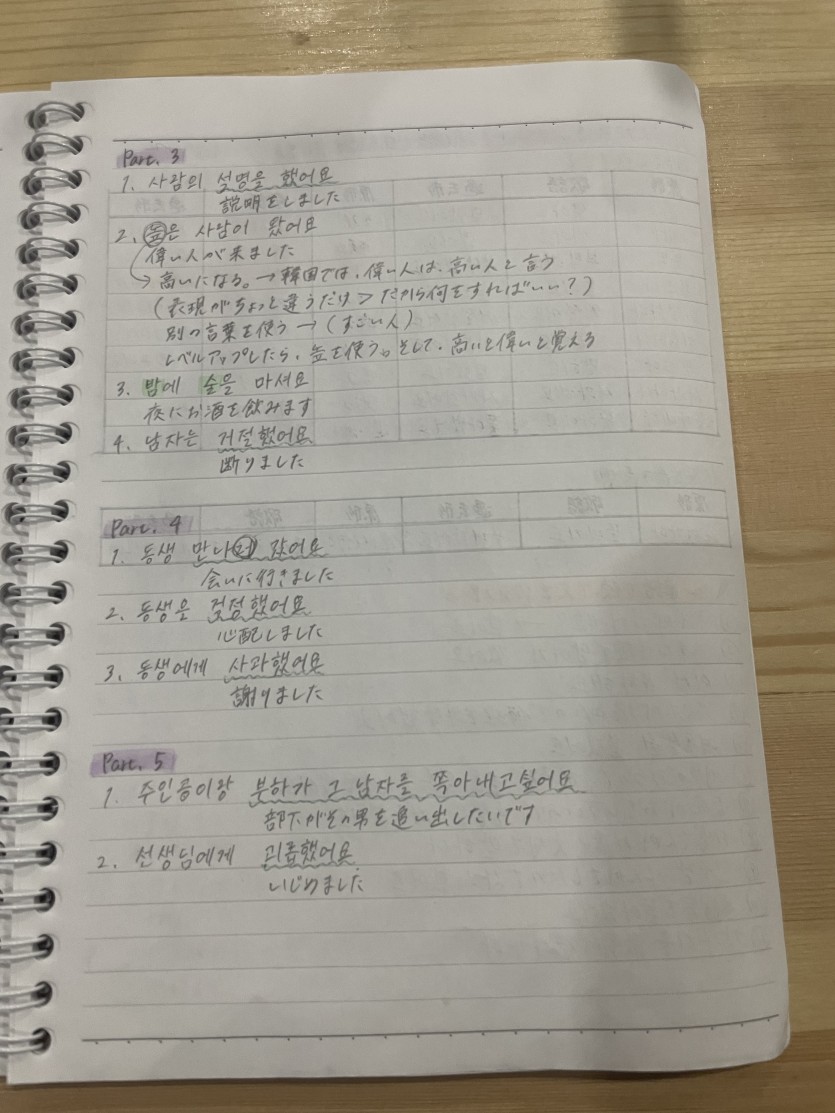 Part. 3
1. 사람의 설명을 했어요
説明をしました
2. 높은 사람이 왔어요
偉い人が来ました
→ 高いになる。→ 韓国では、偉い人は、高い人と言う
(表現がちょっと違うだけ > だから何をすればいい?)
別の言葉を使う → (すごい人)
レベルアップしたら、높を使う。そして、高いと偉いと覚える
3. 밤에 술을 마셔요
夜にお酒を飲みます
4. 남자는 거절했어요
断りました
Part. 4
1. 동생 만나러 갔어요
会いに行きました
2. 동생은 걱정했어요
心配しました
3. 동생에게 사과했어요
謝りました
Part. 5
1. 주인공이랑 부하가 그 남자를 쫓아내고싶어요
部下がその男を追い出したいです
2. 선생님에게 괴롭했어요
いじめました